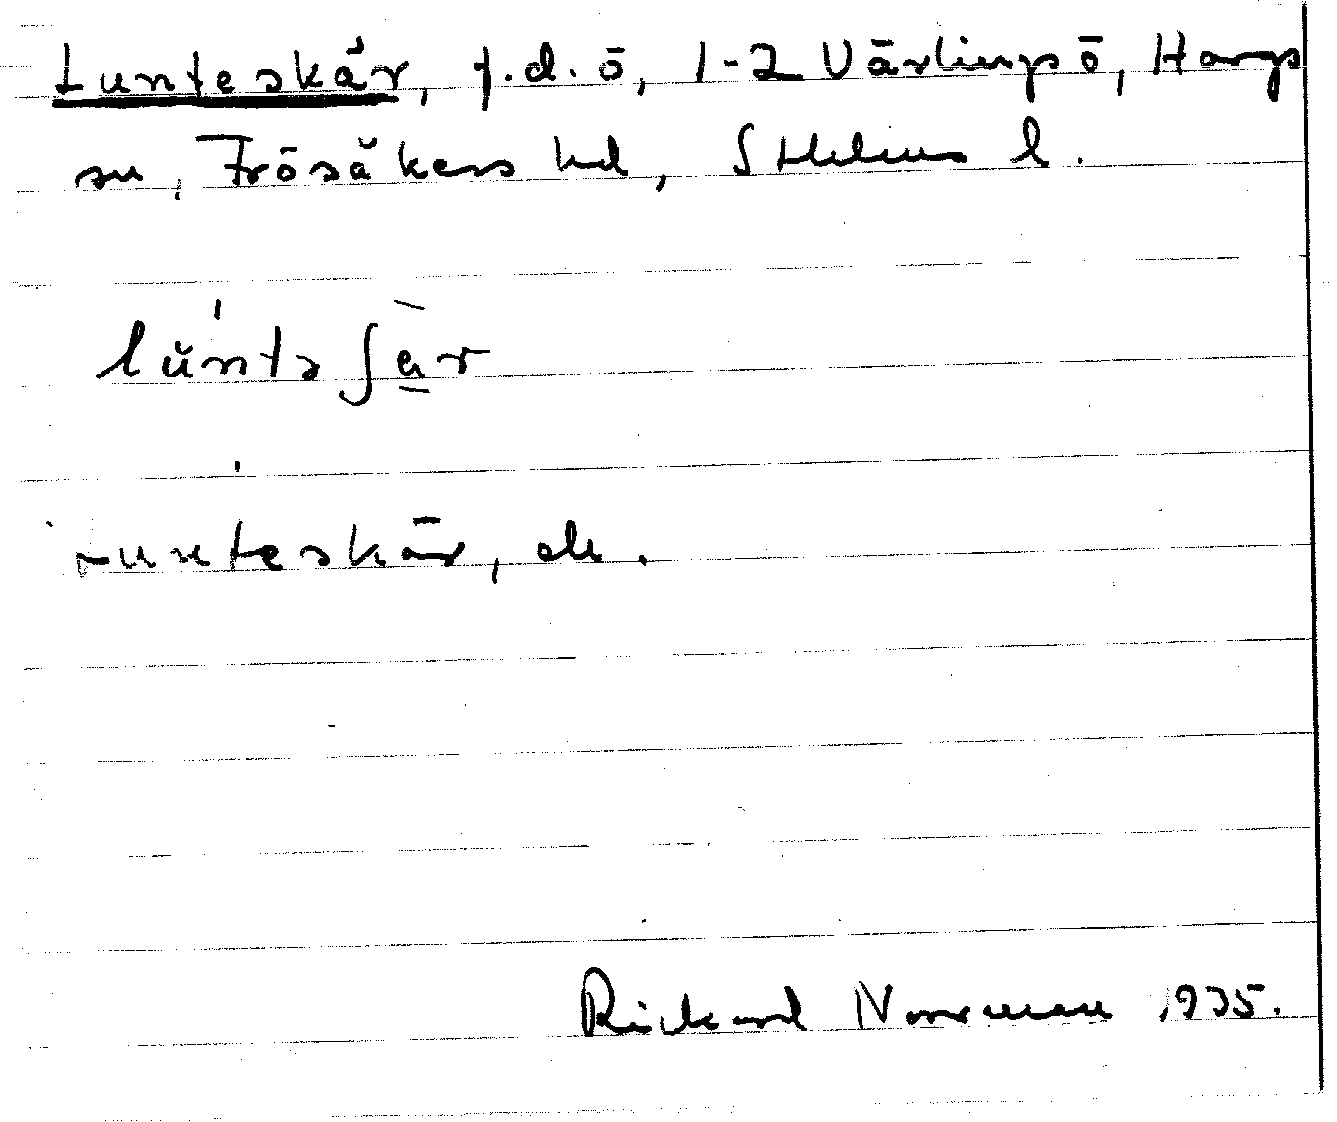 Lunteskär, f.d. ö, 1-2 Värlingsö, Hargs
sn, Frösåkers hd, Sthlms l.
lŭntəʃär
Lunteskär, de.
Rickard Norrman 1935.